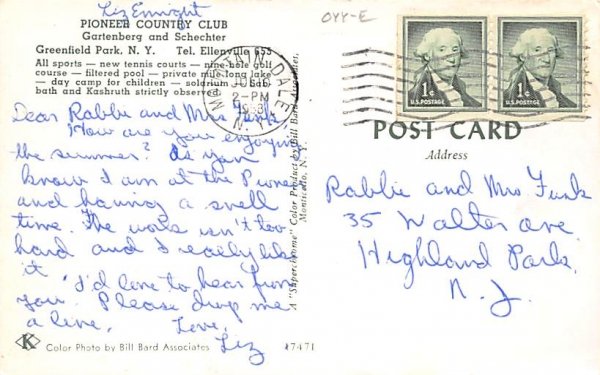 Liz Enright
OYY-E
PIONEER COUNTRY CLUB
Gartenberg and Schechter
Greenfield Park, N. Y. Tel. Ellenville 653
All sports — new tennis courts — nine-hole golf
course — filtered pool — private mile-long lake
— day camp for children — solarium — Sab-
bath and Kashruth strictly observed
MOUNTAIN DALE
2-PM
N.Y.
1¢ U.S. POSTAGE
1¢ U.S. POSTAGE
Dear Rabbi and Mrs Funk,
How are you enjoying
the summer? As you
know I am at the Pioneer
and having a swell
time. The work isn't too
hard and I really like
it
I'd love to hear from
you. Please drop me
a line.
Love,
Liz
K
Color Photo by Bill Bard Associates
A "Superchrome" Color Product by Bill Bard Associates,
Monticello, N. Y.
K7471
POST CARD
Address
Rabbi and Mrs Funk
35 Walter ave.
Highland Park,
N. J.